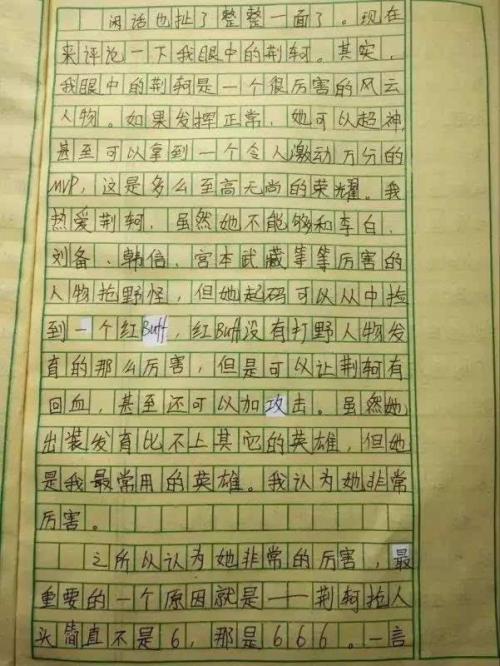 闲话也扯了整整一面了。现在
来评论一下我眼中的荆轲。其实,
我眼中的荆轲是一个很厉害的风云
人物。如果发挥正常,她可以超神,
甚至可以拿到一个令人激动万分的
MVP,这是多么至高无尚的荣耀。我
热爱荆轲,虽然她不能够和李白、
刘备、韩信、宫本武藏等等厉害的
人物抢野怪,但她起码可以从中捡
到一个红Buff,红Buff没有打野人物发
育的那么厉害,但是可以让荆轲有
回血,甚至还可以加攻击。虽然她
出装发育比不上其它的英雄,但她
是我最常用的英雄。我认为她非常
厉害。
之所以认为她非常的厉害,最
重要的一个原因就是——荆轲抢人
头简直不是6,那是666。一言